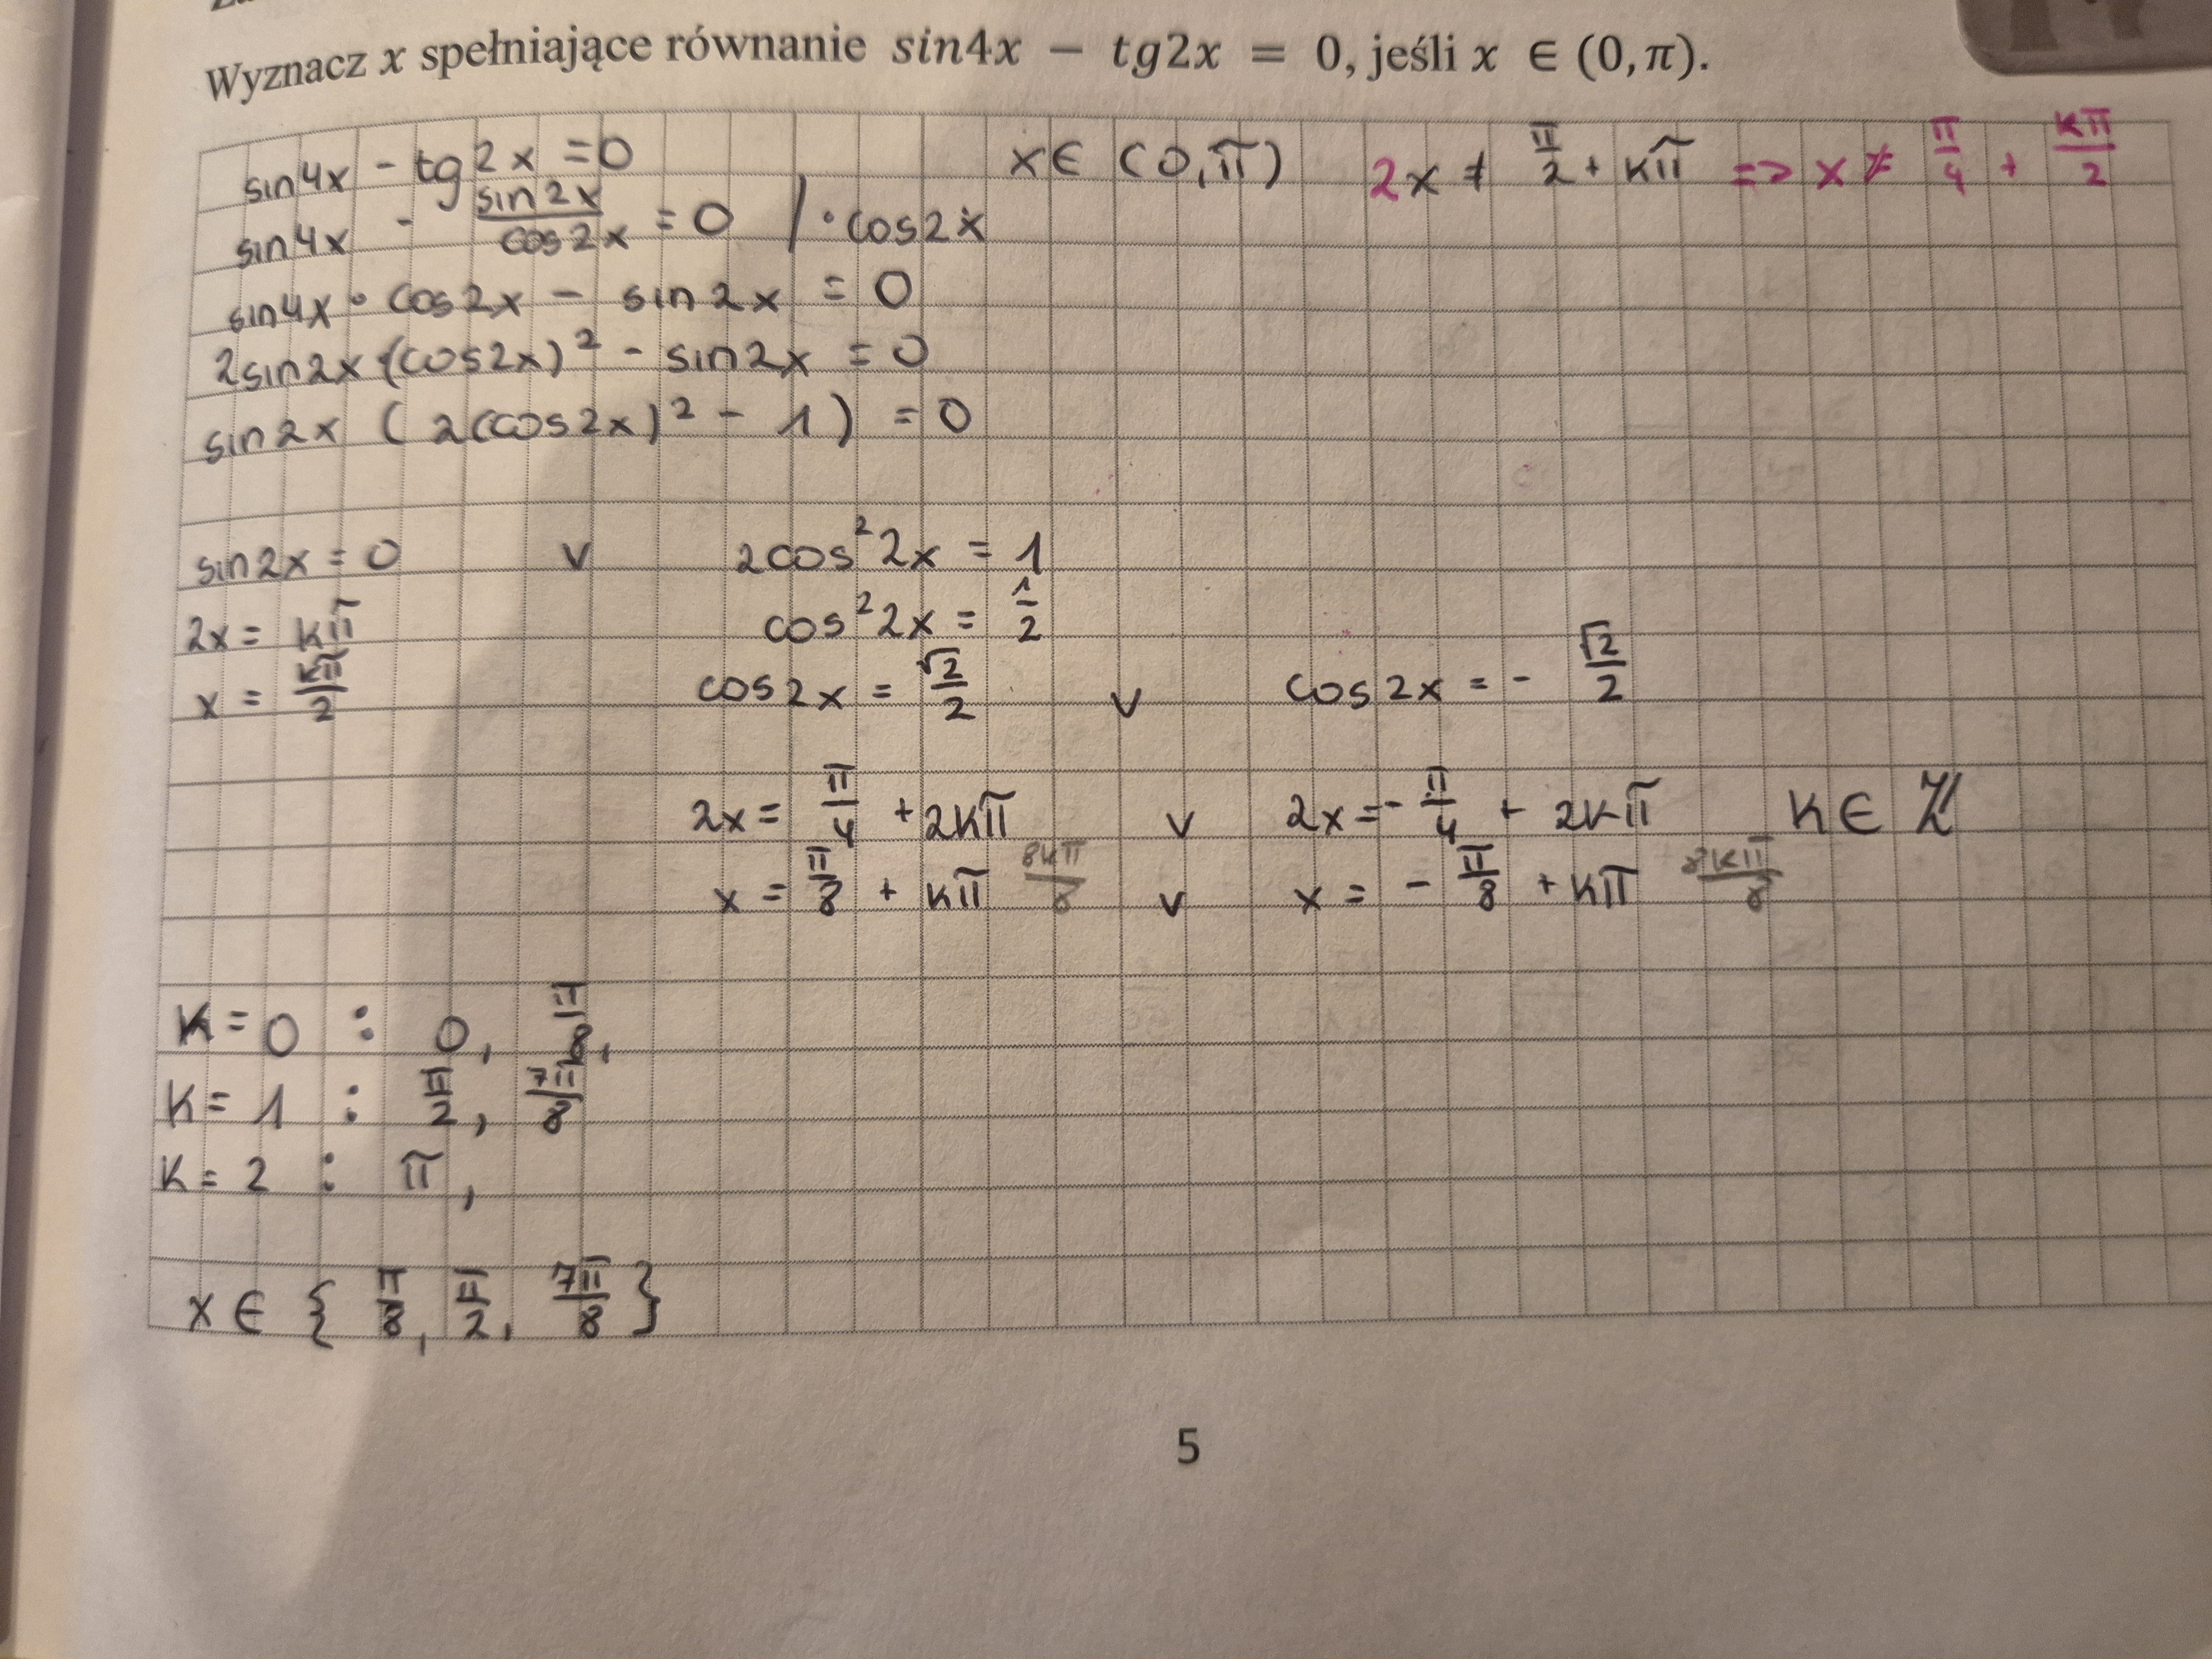 Wyznacz x spełniające równanie sin4x − tg2x = 0, jeśli x ∈ (0, π).
sin4x - tg2x = 0 x ∈ (0, π) 2x ≠ π/2 + kπ => x ≠ π/4 + kπ/2
sin4x - sin2x/cos2x = 0 / · cos2x
sin4x · cos2x - sin2x = 0
2sin2x·(cos2x)² - sin2x = 0
sin2x (2(cos2x)² - 1) = 0
sin2x = 0 v 2cos²2x = 1
2x = kπ cos²2x = 1/2
x = kπ/2 cos2x = √2/2 v cos2x = - √2/2
2x = π/4 + 2kπ v 2x = - π/4 + 2kπ k ∈ ℤ
x = π/8 + kπ 8kπ/8 v x = - π/8 + kπ 8kπ/8
k = 0 : 0, π/8,
k = 1 : π/2, 7π/8
k = 2 : π,
x ∈ { π/8, π/2, 7π/8 }
5